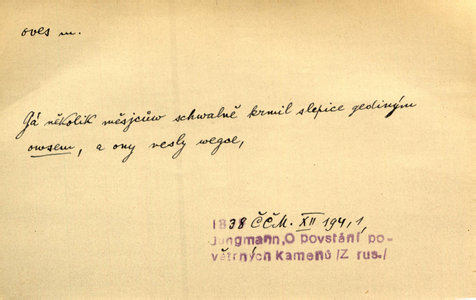 oves m.
Já několik měsjcůw schwalně krmil slepice gediným
owsem, a ony nesly wegce,
1838 ČČM. XII 194,1,
Jungmann,O povstání po-
větrných Kamenů /Z rus./